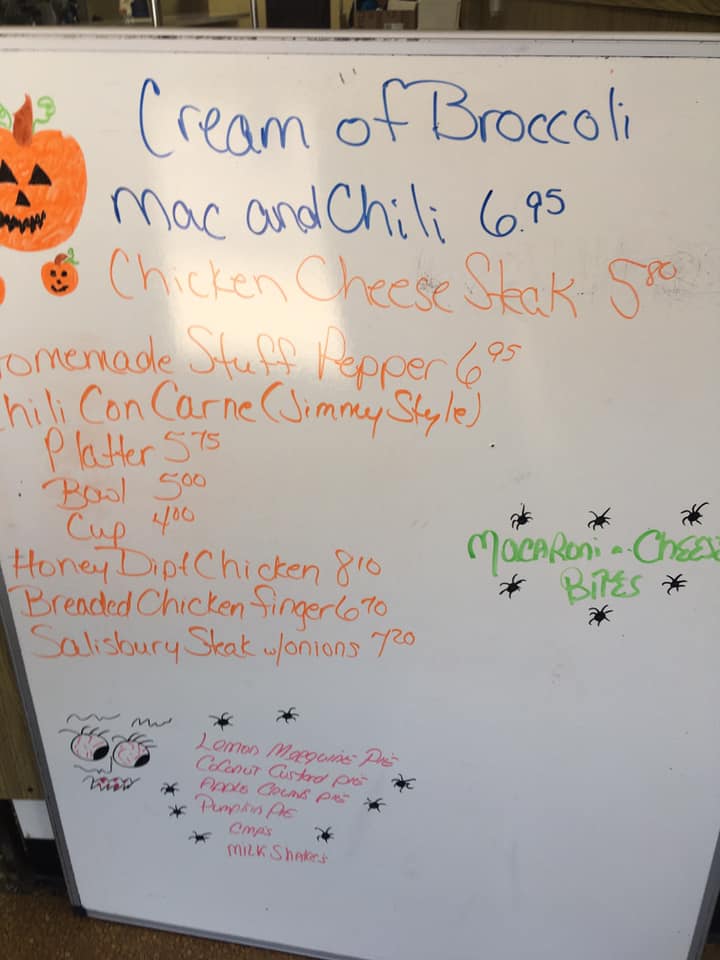 Cream of Broccoli
Mac and Chili 6.95
Chicken Cheese Steak 5 80
omemade Stuff Pepper 6 95
hili Con Carne (Jimmey Style)
Platter 5 75
Bowl 5 00
Cup 4 00
Honey Dipt Chicken 8 10
Breaded Chicken finger 6 70
Salisbury Steak w/onions 7 20
MACARoni n CHEESE
BiTES
Lemon Meringue Pie
Coconut Custard Pie
Apple Pie
Pumpkin Pie
MILK Shakes